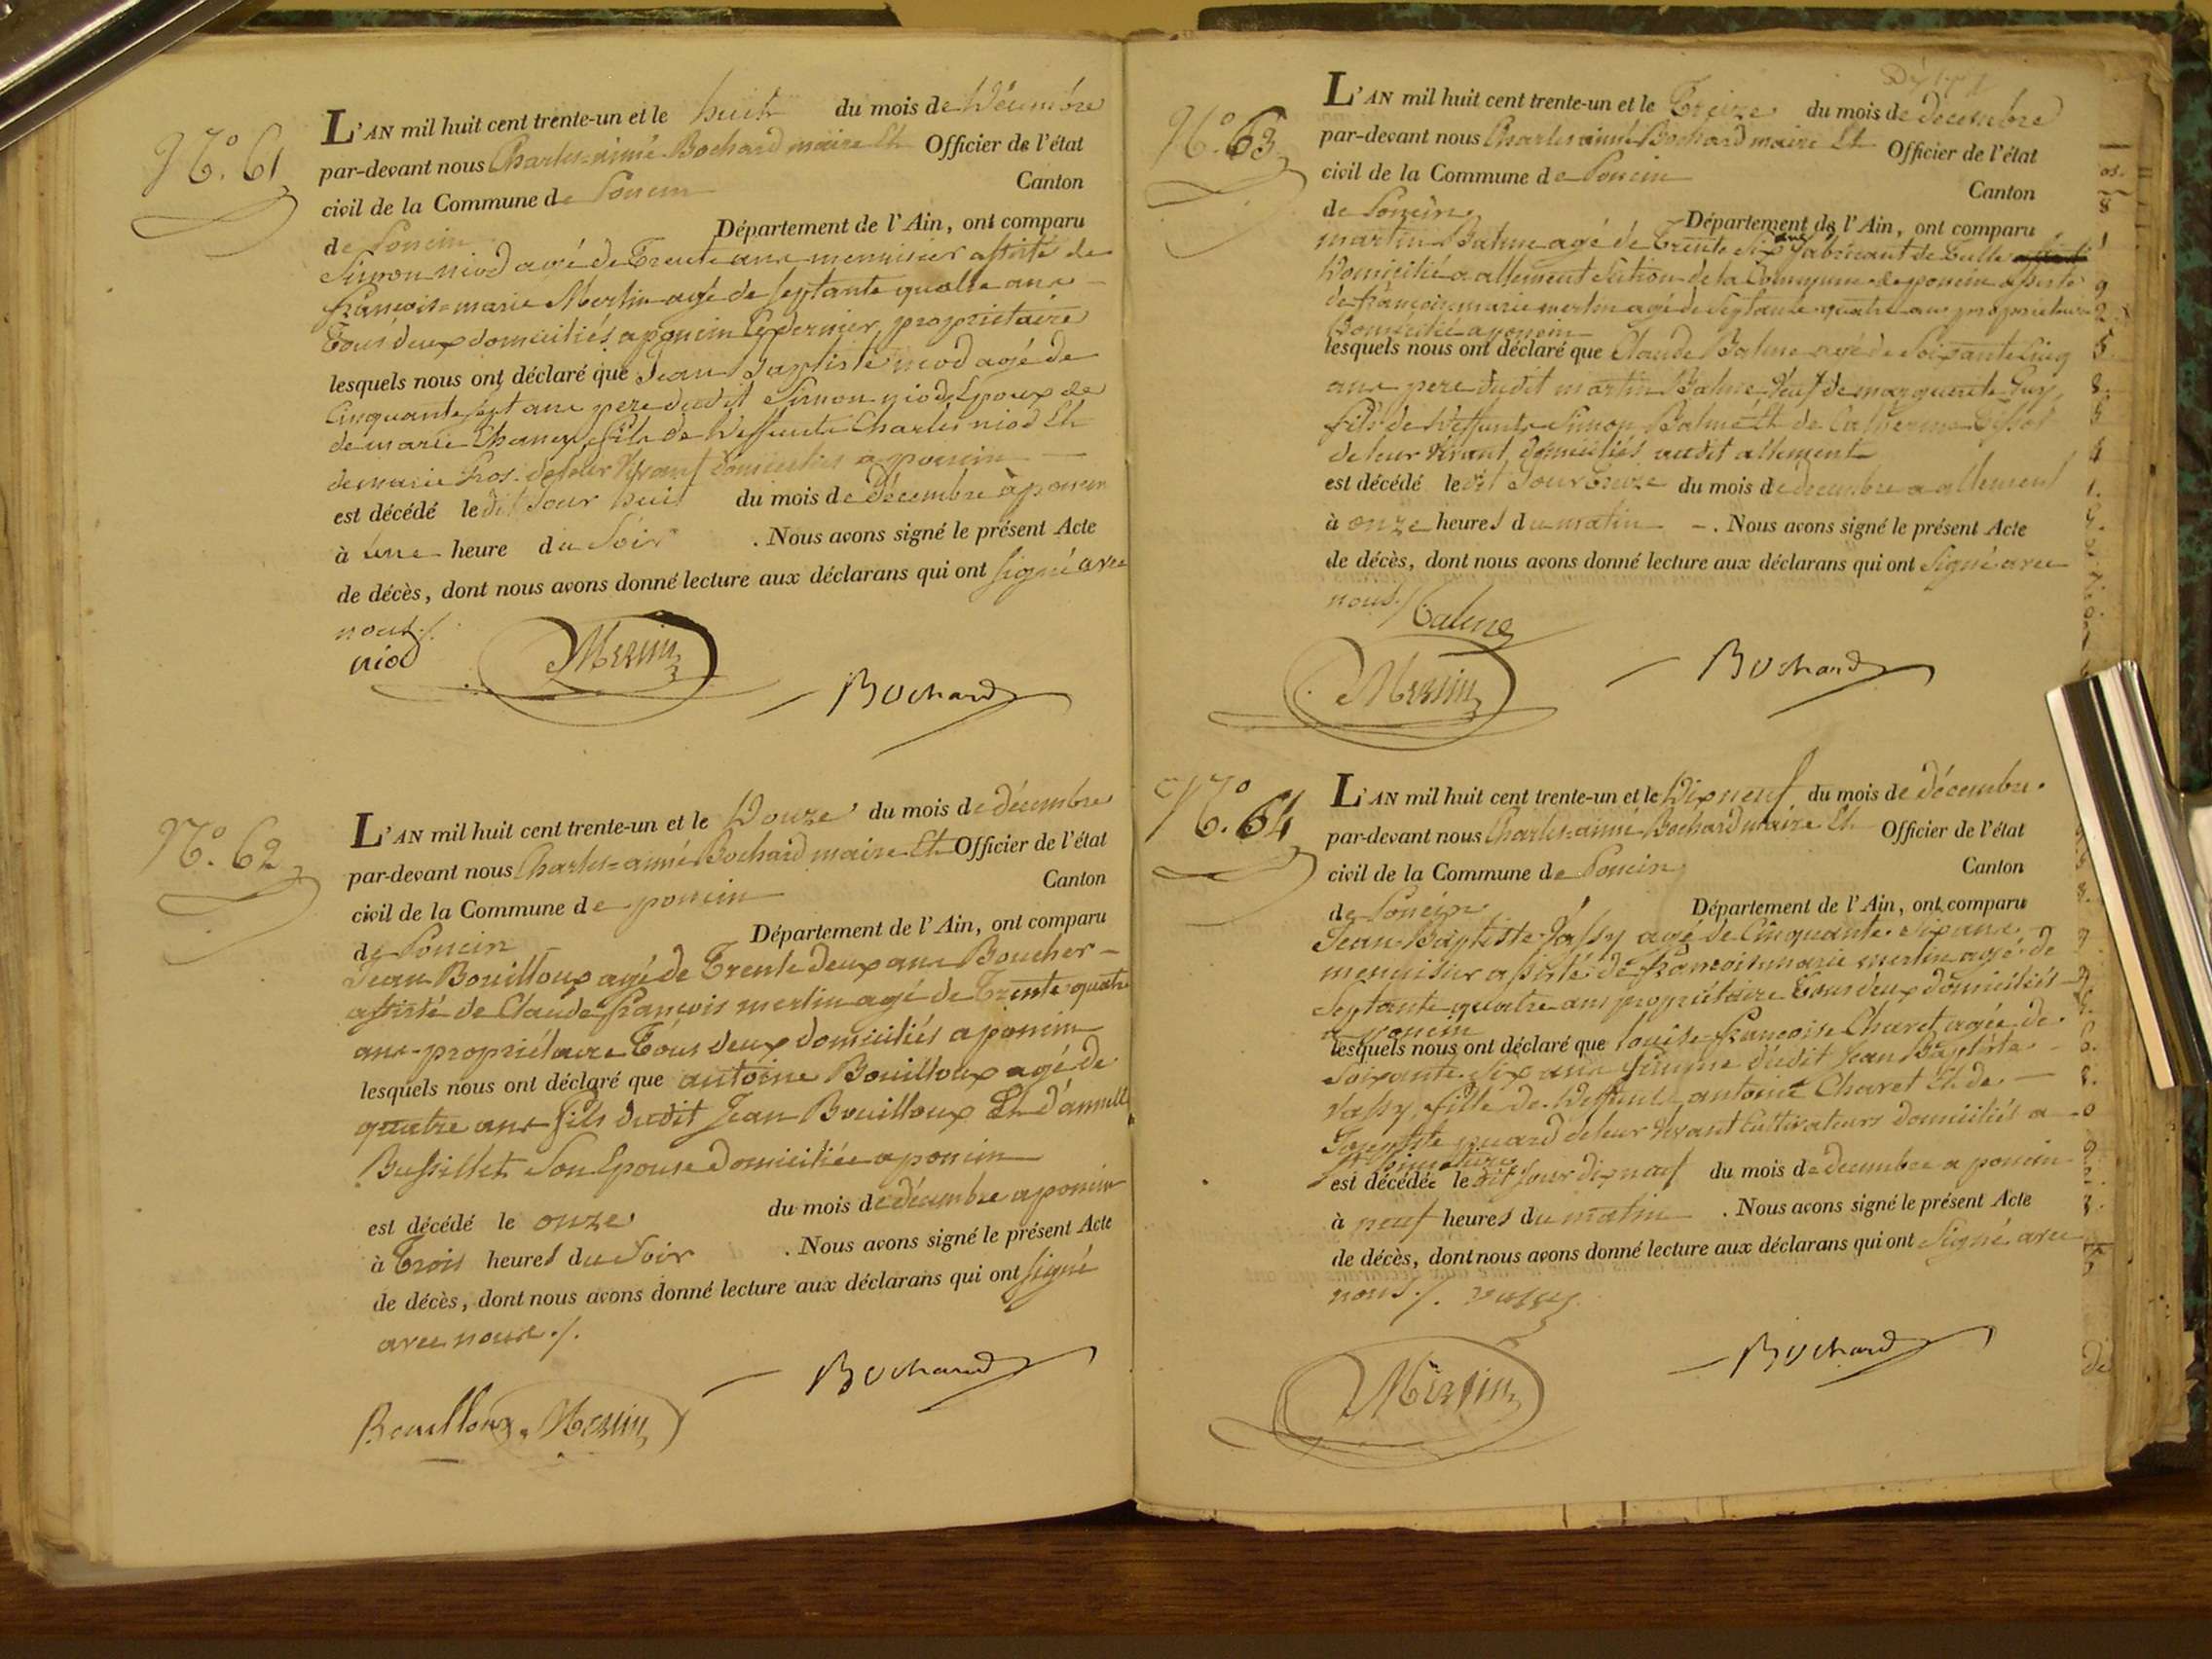 N.º 61
L'AN mil huit cent trente-un et le huit du mois de Décembre
par-devant nous Charles=aimé Bochard maire Et Officier de l'état
civil de la Commune de Poncin Canton
de Poncin Département de l'Ain, ont comparu
Simon niod agé de Trente ans menuisier assisté de
françois=marie Merlin agé de septante quatre ans
Tous deux domiciliés a poncin Ce dernier propriétaire
lesquels nous ont déclaré que Jean Baptiste niod agé de
Cinquante sept ans pere dudit Simon niod Epoux de
de marie fils de Deffunts Charles niod Et
de marie Gros de leur vivant domiciliés a poncin
est décédé le dit Jour huit du mois de Décembre à poncin
à une heure du Soir . Nous avons signé le présent Acte
de décès, dont nous avons donné lecture aux déclarans qui ont signé avec
nous ./.
niod Merlin
Bochard
N.º 62
L'AN mil huit cent trente-un et le Douze du mois de décembre
par-devant nous Charles=aimé Bochard maire Et Officier de l'état
civil de la Commune de poncin Canton
de Poncin Département de l'Ain, ont comparu
Jean Bouilloux agé de Trente deux ans Boucher
assisté de Claude françois merlin agé de Trente-quatre
ans-propriétaire Tous deux domiciliés a poncin
lesquels nous ont déclaré que antoine Bouilloux agé de
quatre ans fils dudit Jean Bouilloux Et d'
Bussillet Son Epouse domiciliée a poncin
est décédé le onze du mois de décembre a poncin
à Trois heures du Soir . Nous avons signé le présent Acte
de décès, dont nous avons donné lecture aux déclarans qui ont signé
avec nous ./.
Bochard
Bouilloux Merlin
N.º 63
L'AN mil huit cent trente-un et le Treize du mois de décembre
par-devant nous Charles aimé Bochard maire Et Officier de l'état
civil de la Commune de Poncin Canton
de Poncin Département de l'Ain, ont comparu
martin Balme agé de Trente Six ans fabricant de Tulle
Domicilié a allement Section de la Commune de poncin assisté
de françois marie merlin agé de Septante quatre ans propriétaire
Domicilié a poncin
lesquels nous ont déclaré que Claude Balme agé de Soixante Cinq
ans pere dudit martin Balme Veuf de marguerite Guy
fils de Deffunts Simon Balme Et de Catherine
de leur vivant domiciliés audit allement
est décédé le dit Jour Treize du mois de decembre a allement
à onze heures du matin . Nous avons signé le présent Acte
de décès, dont nous avons donné lecture aux déclarans qui ont Signé avec
nous ./. Balme
Bochard
Merlin
N.º 64
L'AN mil huit cent trente-un et le Dix neuf du mois de décembre
par-devant nous Charles=aimé Bochard maire Et Officier de l'état
civil de la Commune de Poncin Canton
de Poncin Département de l'Ain, ont comparu
Jean-Baptiste Vassy agé de Cinquante Six ans
menuisier assisté de françois marie merlin agé de
Septante quatre ans propriétaire Tous deux domiciliés
a poncin
lesquels nous ont déclaré que louise françoise Charet agée de
Soixante Six ans femme dudit Jean Baptiste
Vassy fille de Deffunts antoine Charet Et de
de leur vivant Cultivateurs domiciliés a
est décédée le dit Jour dix neuf du mois de decembre a poncin
à neuf heures du matin . Nous avons signé le présent Acte
de décès, dont nous avons donné lecture aux déclarans qui ont Signé avec
nous ./. vassy
Bochard
Merlin